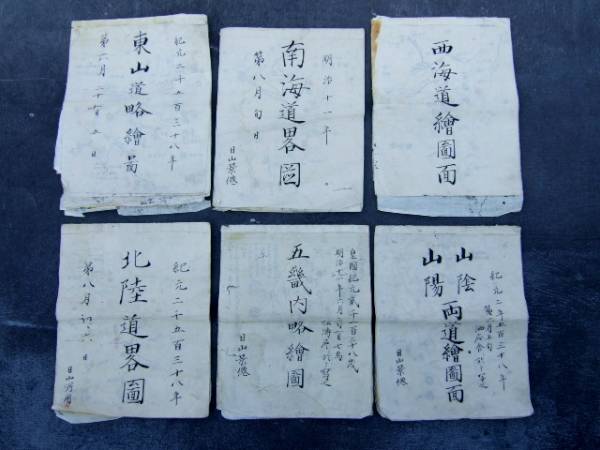 紀元二千五百三十八年
東山道略繪啚
第六月二十五日
明治十一年
南海道畧圖
第八月旬日
日山景僊
西海道繪圖面
紀元二千五百三十八年
北陸道畧圖
第八月
日
皇國紀元貳千五百三十八歳
五畿内略繪圖
日山景僊
紀元二千五百三十八年
山陰
山陽
両道繪圖面
日山景僊